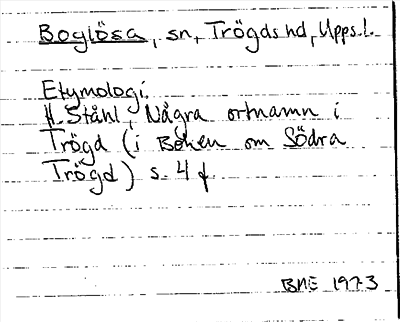 Boglösa, sn, Trögds hd, Upps.l.
Etymologi.
H. Ståhl, Några ortnamn i
Trögd (i Boken om Södra
Trögd) s. 4 f.
BME 1973